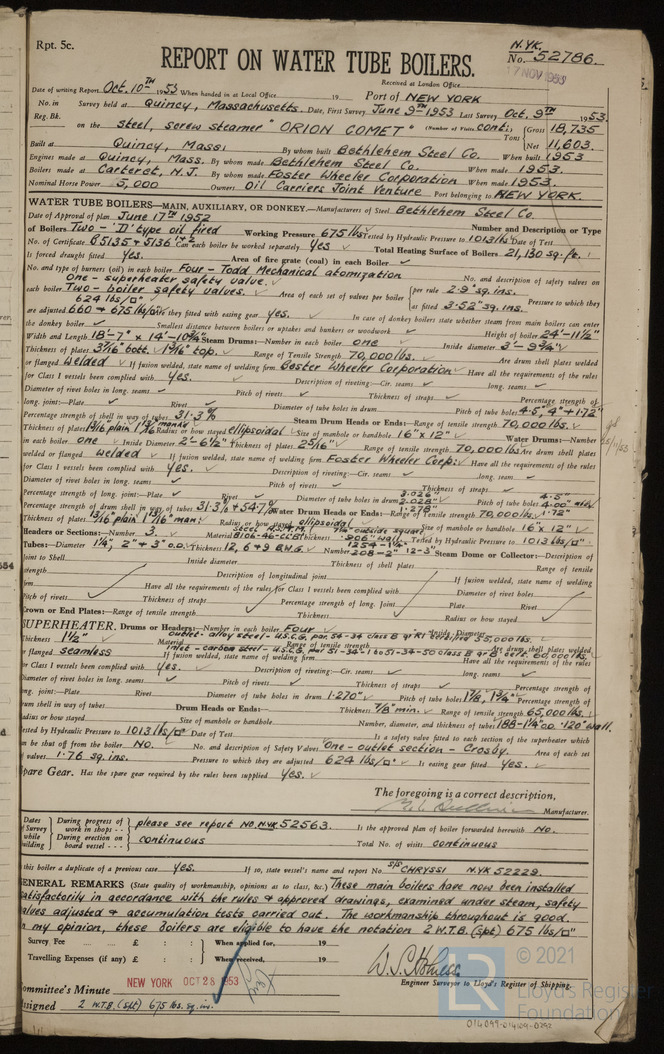 Rpt. 5c.
REPORT ON WATER TUBE BOILERS.
N.YK.
No. 52786.
17 NOV 1953
Received at London Office
Date of writing Report Oct. 10TH 1953 When handed in at Local Office 19 Port of NEW YORK
No. in Survey held at Quincy, Massachusetts. Date, First Survey June 9TH 1953 Last Survey Oct. 9TH 1953.
Reg. Bk.
on the Steel, screw steamer "ORION COMET" (Number of Visits. cont.) Tons Gross 18,735
Net 11,603.
Built at Quincy, Mass: By whom built Bethlehem Steel Co. When built 1953
Engines made at Quincy, Mass. By whom made Bethlehem Steel Co. When made 1953.
Boilers made at Carteret, N.J. By whom made Foster Wheeler Corporation When made 1953.
Nominal Horse Power 5,000 Owners Oil Carriers Joint Venture Port belonging to NEW YORK.
WATER TUBE BOILERS—MAIN, AUXILIARY, OR DONKEY.—Manufacturers of Steel Bethlehem Steel Co.
Date of Approval of plan June 17TH 1952 Number and Description or Type
of Boilers Two - 'D' type oil fired Working Pressure 675 lbs Tested by Hydraulic Pressure to 1013 lbs Date of Test
No. of Certificate B5135 & 5136 Can each boiler be worked separately Yes Total Heating Surface of Boilers 21,130 sq. ft.
Is forced draught fitted Yes. Area of fire grate (coal) in each Boiler
No. and type of burners (oil) in each boiler Four - Todd Mechanical atomization No. and description of safety valves on
One - superheater safety valve.
each boiler Two - boiler safety valves. Area of each set of valves per boiler per rule 2.9 sq. ins.
as fitted 3.52 sq. ins. Pressure to which they
624 lbs/□"
are adjusted 660 & 675 lbs/□" Are they fitted with easing gear Yes. In case of donkey boilers state whether steam from main boilers can enter
the donkey boiler Smallest distance between boilers or uptakes and bunkers or woodwork Height of boiler 24'-11½"
Width and Length 18'-7" x 14'-10¾" Steam Drums:—Number in each boiler one Inside diameter 3'-9¾"
Thickness of plates 3 7/16" bott. 1 9/16" top. Range of Tensile Strength 70,000 lbs. Are drum shell plates welded
or flanged Welded If fusion welded, state name of welding firm Foster Wheeler Corporation Have all the requirements of the rules
for Class I vessels been complied with Yes. Description of riveting:—Cir. seams long. seams
Diameter of rivet holes in long. seams Pitch of rivets Thickness of straps Percentage strength of
long. joint:—Plate Rivet Diameter of tube holes in drum Pitch of tube holes 4.5", 4" & 1.72"
Percentage strength of shell in way of tubes 31.3% Steam Drum Heads or Ends:—Range of tensile strength 70,000 lbs.
Radius or how stayed ellipsoidal Size of manhole or handhole 16" x 12" Water Drums:—Number
in each boiler one Inside Diameter 2'-6½" Thickness of plates 2 5/16" Range of tensile strength 70,000 lbs Are drum shell plates
welded or flanged welded If fusion welded, state name of welding firm Foster Wheeler Corp: Have all the requirements of the rules
for Class I vessels been complied with Yes. Description of riveting:—Cir. seams long. seams
Diameter of rivet holes in long. seams Pitch of rivets Thickness of straps
Percentage strength of long. joint:—Plate Rivet Diameter of tube holes in drum 3.026" 2.028" 1.278" Pitch of tube holes
Percentage strength of drum shell in way of tubes 31.3% & 54.7% Water Drum Heads or Ends:—Range of tensile strength 70,000 lbs.
Thickness of plates Radius or how stayed ellipsoidal Size of manhole or handhole 16" x 12"
Headers or Sections:—Number 3. Material Thickness Tested by Hydraulic Pressure to 1013 lbs/□"
Tubes:—Diameter 1¼", 2" & 3" O.D. Thickness 12, 6 & 9 B.W.G. Number 1254-1¼" 208-2" 12-3" Steam Dome or Collector:—Description of
Joint to Shell Inside diameter Thickness of shell plates Range of tensile
strength Description of longitudinal joint If fusion welded, state name of welding
firm Have all the requirements of the rules for Class I vessels been complied with Diameter of rivet holes
Pitch of rivets Thickness of straps Percentage strength of long. joint Plate Rivet
Crown or End Plates:—Range of tensile strength Thickness Radius or how stayed
SUPERHEATER. Drums or Headers:—Number in each boiler Four Inside Diameter
Thickness 1½" Material Range of tensile strength Are drum shell plates welded
or flanged seamless If fusion welded, state name of welding firm Have all the requirements of the rules
for Class I vessels been complied with Yes. Description of riveting:—Cir. seams long. seams
Diameter of rivet holes in long. seams Pitch of rivets Thickness of straps Percentage strength of
long. joint:—Plate Rivet Diameter of tube holes in drum 1.270" Pitch of tube holes 1⅞", 1¾" Percentage strength of
drum shell in way of tubes Drum Heads or Ends:— Thickness ⅞" min. Range of tensile strength 65,000 lbs.
Radius or how stayed Size of manhole or handhole Number, diameter, and thickness of tubes 188-1¼" O.D. .120" wall.
Tested by Hydraulic Pressure to 1013 lbs/□" Date of Test Is a safety valve fitted to each section of the superheater which
can be shut off from the boiler No. No. and description of Safety Valves One - outlet section - Crosby. Area of each set
of valves 1.76 sq. ins. Pressure to which they are adjusted 624 lbs/□" Is easing gear fitted Yes.
Spare Gear. Has the spare gear required by the rules been supplied Yes.
The foregoing is a correct description,
Manufacturer.
Dates of Survey while building
During progress of work in shops - - please see report NO. N.YK 52563. Is the approved plan of boiler forwarded herewith No.
During erection on board vessel - - - continuous Total No. of visits continuous
Is this boiler a duplicate of a previous case Yes. If so, state vessel's name and report No. S/S "CHRYSSI N.YK 52229.
GENERAL REMARKS (State quality of workmanship, opinions as to class, &c.) These main boilers have now been installed
satisfactorily in accordance with the rules & approved drawings, examined under steam, safety
valves adjusted & accumulation tests carried out. The workmanship throughout is good.
In my opinion, these boilers are eligible to have the notation 2 W.T.B. (Spt) 675 lbs/□"
Survey Fee £ : : When applied for, 19
Travelling Expenses (if any) £ : : When received, 19
Engineer Surveyor to Lloyd's Register of Shipping.
Committee's Minute NEW YORK OCT 28 1953
Assigned 2 W.T.B. (Spt) 675 lbs. sq. in.
© 2021
LR
Lloyd's Register
Foundation
014099-014109-0292